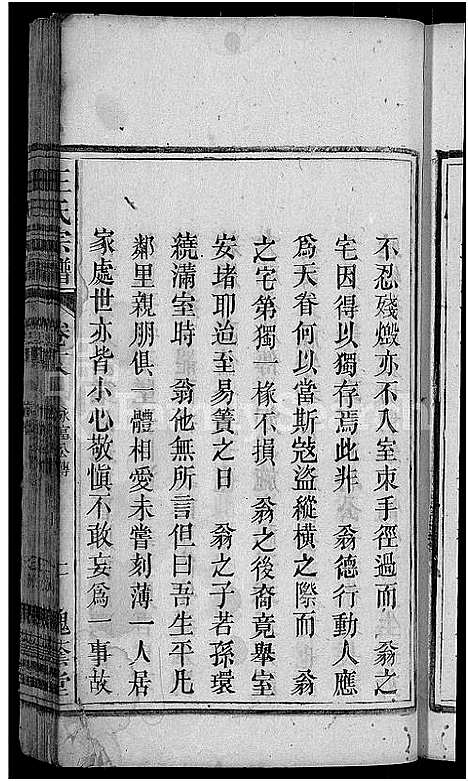 不忍殘燬亦不入室束手徑過而 翁之
宅因得以獨存焉此非 翁德行動人應
爲天眷何以當斯寇盜縱橫之際而 翁
之宅第獨得椽不損 翁之後裔竟舉室
安堵耶迨至易簀之日 翁之子若孫環
繞滿室時 翁他無所言但曰吾生平凡
鄰里親朋俱一體相愛未嘗刻薄一人居
家處世亦皆小心敬愼不敢妄爲一事故
王氏宗譜
卷
公傳
槐蔭堂